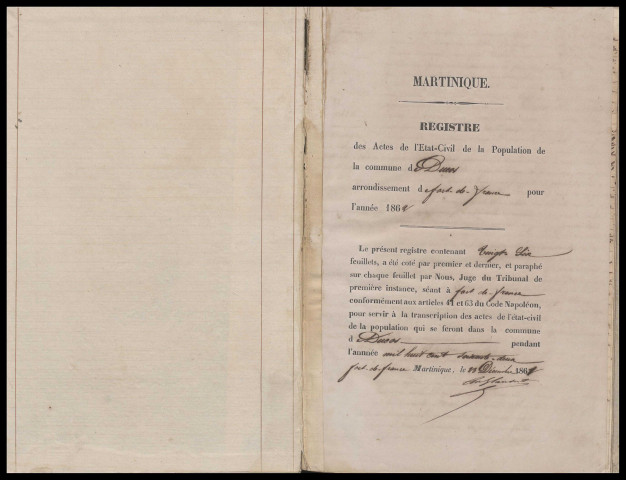 MARTINIQUE.
REGISTRE
des Actes de l'Etat-Civil de la Population de
la commune d Ducos
arrondissement d fort-de-france pour
l'année 186
Le présent registre contenant Vingt Six
feuillets, a été coté par premier et dernier, et paraphé
sur chaque feuillet par Nous, Juge du Tribunal de
première instance, séant à fort de france
conformément aux articles 41 et 63 du Code Napoléon,
pour servir à la transcription des actes de l'état-civil
de la population qui se feront dans la commune
d Ducos pendant
l'annnée mil huit cent soixante-
fort-de-france Martinique, le Décembre 186